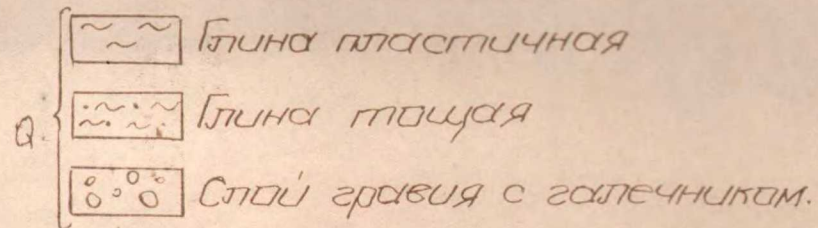 Глина пластичная
Q. Глина тощая
Слой гравия с галечником.